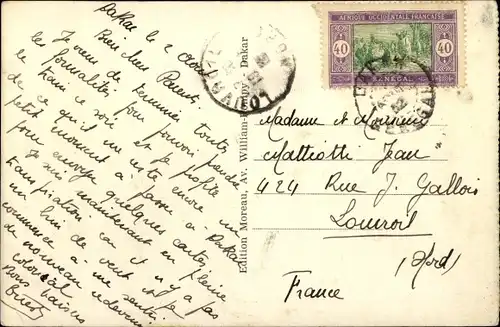 Dakar le 2 Août
Bien chers Parents,
Je viens de terminer toutes
les formalités pour pouvoir prendre
le train ce soir et je profite
de ce qu'il me reste encore un
petit moment à passer à Dakar
pour envoyer quelques cartes.
Je suis maintenant en pleine
transpiration car il n'y a pas
un brin de vent et je
commence à me sentir
de nouveau redevenu
colonial
Bons baisers
Edition Moreau, Av. William-Ponty Dakar
AFRIQUE OCCIDENTALE FRANÇAISE
40 40
SÉNÉGAL
Madame et Monsieur
Matteotti Jean
424 Rue J. Gallois
Louvroil
(Nord)
France